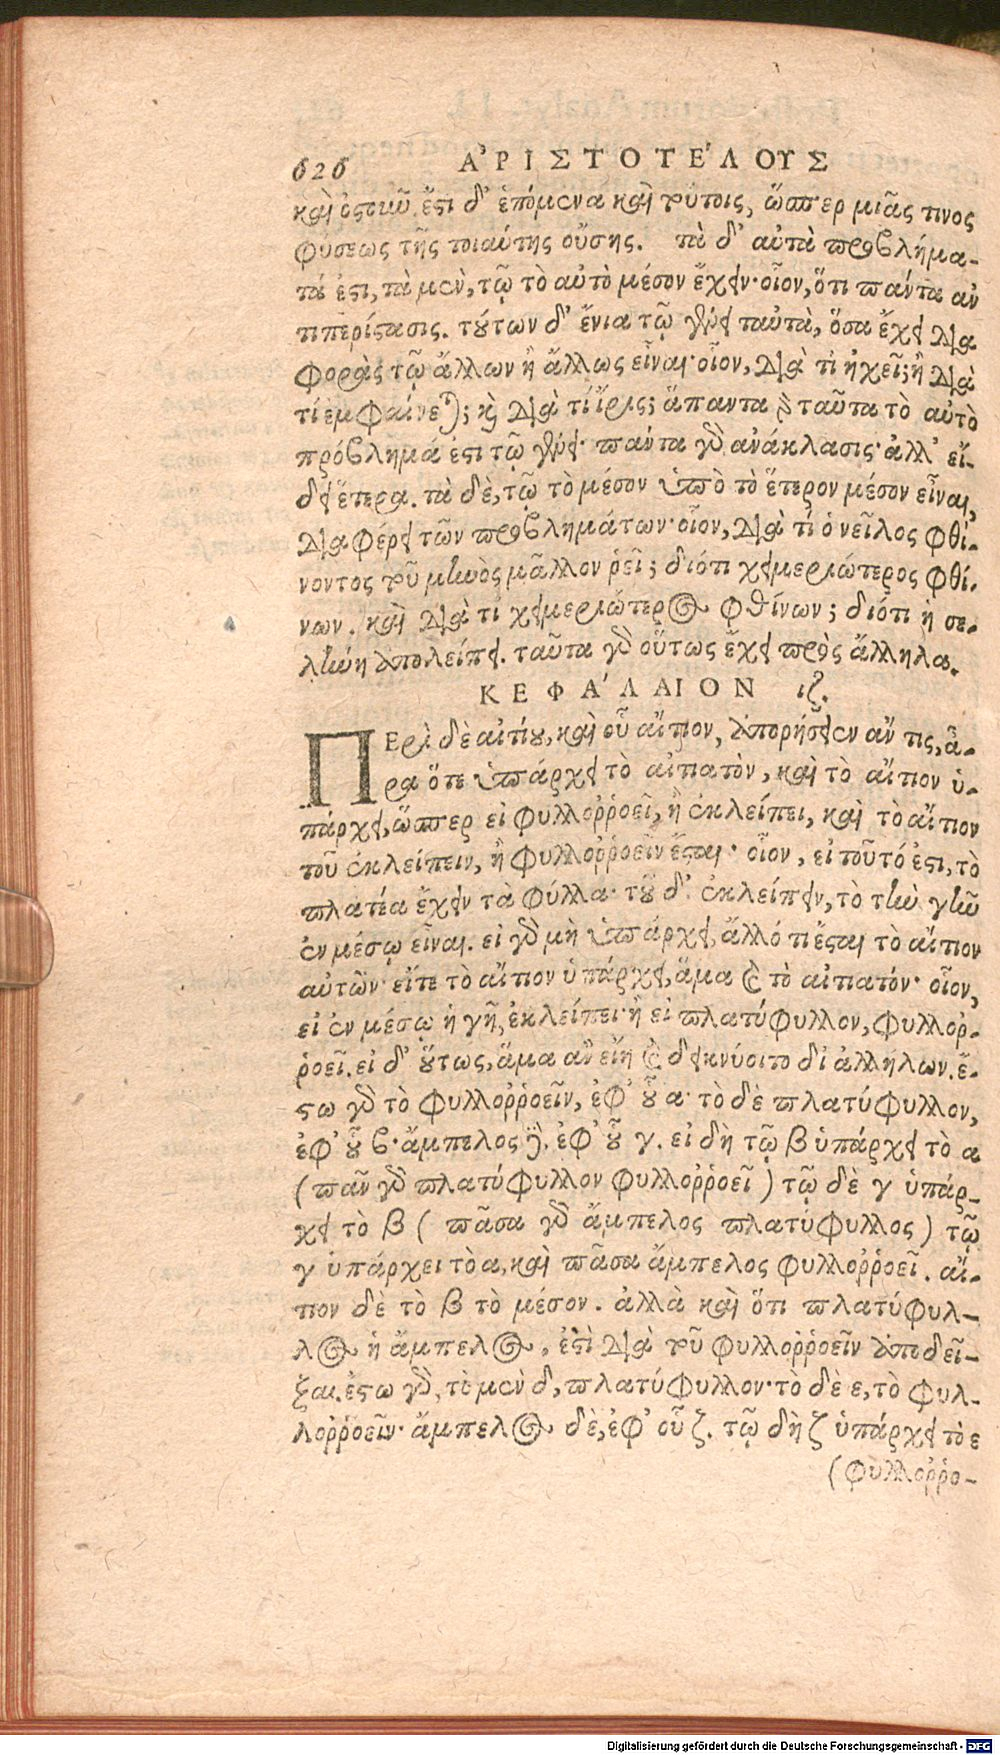 626 ἈΡΙΣΤΟΤΈΛΟΥΣ
καὶ ὀστοῦν. ἔστι δ᾽ ἑπόμενα καὶ τούτοις, ὥσπερ μιᾶς τινος
φύσεως τῆς τοιαύτης οὔσης. τὰ δ᾽ αὐτὰ προβλήμα-
τά ἐστι, τὰ μὲν, τῷ τὸ αὐτὸ μέσον ἔχειν· οἷον, ὅτι πάντα ἀν
τιπερίστασις. τούτων δ᾽ ἔνια τῷ γένει ταὐτὰ, ὅσα ἔχει δια
φορὰς τῷ ἄλλων ἢ ἄλλως εἶναι· οἷον, διὰ τί ἠχεῖ; ἢ διὰ
τί ἐμφαίνεται; καὶ διὰ τί ἶρις; ἅπαντα δὲ ταῦτα τὸ αὐτὸ
πρόβλημά ἐστι τῷ γένει· πάντα γὰρ ἀνάκλασις· ἀλλ᾽ εἴ-
δει ἕτερα. τὰ δὲ, τῷ τὸ μέσον ὑπὸ τὸ ἕτερον μέσον εἶναι,
διαφέρει τῶν προβλημάτων· οἷον, διὰ τί ὁ νεῖλος φθί-
νοντος τοῦ μηνὸς μᾶλλον ῥεῖ; διότι χειμεριώτερος φθί-
νων. καὶ διὰ τί χειμεριώτερος φθίνων; διότι ἡ σε-
λήνη ἀπολείπει. ταῦτα γὰρ οὕτως ἔχει πρὸς ἄλληλα.
ΚΕΦΆΛΑΙΟΝ ιζ.
ΠΕρὶ δὲ αἰτίου, καὶ οὗ αἴτιον, ἀπορήσειεν ἄν τις, ἆ-
ρα ὅτε ὑπάρχει τὸ αἰτιατὸν, καὶ τὸ αἴτιον ὑ-
πάρχει, ὥσπερ εἰ φυλλοῤῥοεῖ, ἢ ἐκλείπει, καὶ τὸ αἴτιον
τοῦ ἐκλείπειν, ἢ φυλλοῤῥοεῖν ἔσται· οἷον, εἰ τοῦτό ἐστι, τὸ
πλατέα ἔχειν τὰ φύλλα· τοῦ δ᾽ ἐκλείπειν, τὸ τὴν γῆν
ἐν μέσῳ εἶναι. εἰ γὰρ μὴ ὑπάρχει, ἄλλό τι ἔσται τὸ αἴτιον
αὐτῶν· εἴτε τὸ αἴτιον ὑπάρχει, ἅμα καὶ τὸ αἰτιατόν· οἷον,
εἰ ἐν μέσῳ ἡ γῆ, ἐκλείπει· ἢ εἰ πλατύφυλλον, φυλλοῤ-
ῥοεῖ. εἰ δ᾽ οὕτως, ἅμα ἂν εἴη καὶ δεικνύοιτο δι᾽ ἀλλήλων. ἔ-
στω γὰρ τὸ φυλλοῤῥοεῖν, ἐφ᾽ οὗ α· τὸ δὲ πλατύφυλλον,
ἐφ᾽ οὗ β· ἄμπελος δὲ, ἐφ᾽ οὗ γ. εἰ δὴ τῷ β ὑπάρχει τὸ α
(πᾶν γὰρ πλατύφυλλον φυλλοῤῥοεῖ) τῷ δὲ γ ὑπάρ-
χει τὸ β (πᾶσα γὰρ ἄμπελος πλατύφυλλος) τῷ
γ ὑπάρχει τὸ α, καὶ πᾶσα ἄμπελος φυλλοῤῥοεῖ. αἴ-
τιον δὲ τὸ β τὸ μέσον. ἀλλὰ καὶ ὅτι πλατύφυλ-
λος ἡ ἄμπελος, ἐστὶ διὰ τοῦ φυλλοῤῥοεῖν ἀποδεῖ-
ξαι. ἔστω γὰρ, τὸ μὲν δ, πλατύφυλλον· τὸ δὲ ε, τὸ φυλ-
λοῤῥοεῖν· ἄμπελος δὲ, ἐφ᾽ οὗ ζ. τῷ δὴ ζ ὑπάρχει τὸ ε
(φυλλοῤῥο-
Digitalisierung gefördert durch die Deutsche Forschungsgemeinschaft - DFG